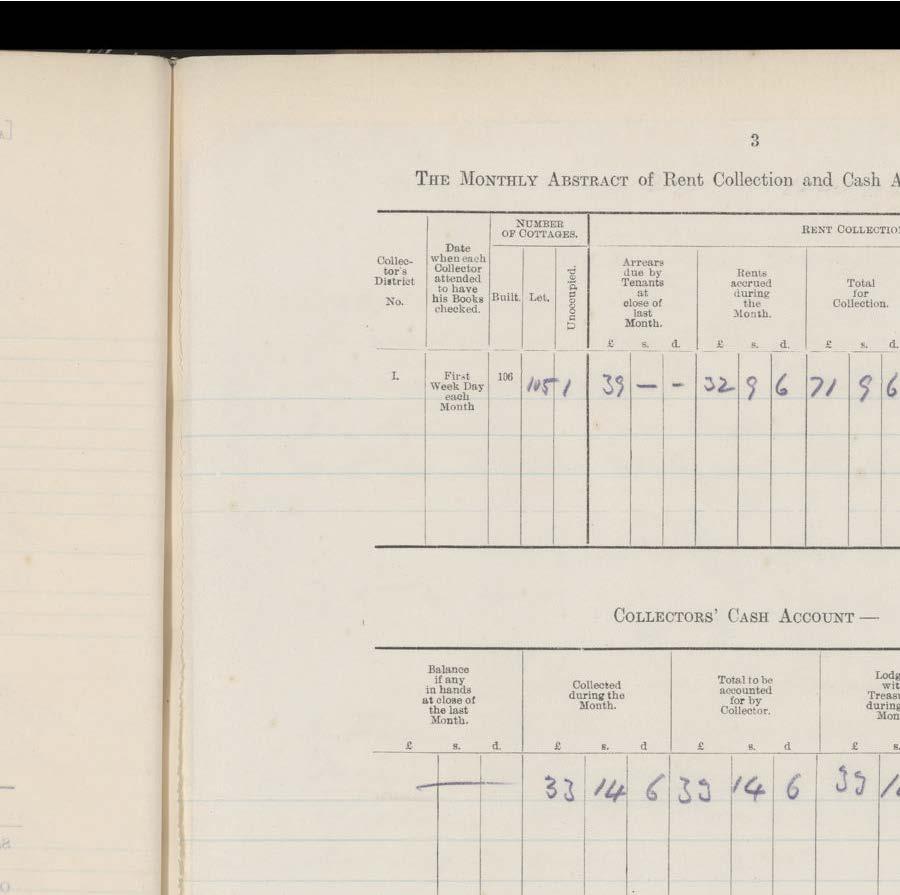 3
THE MONTHLY ABSTRACT of Rent Collection and Cash A
NUMBER
OF COTTAGES.
RENT COLLECTIO
Collec-
tor's
District
No.
Date
when each
Collector
attended
to have
his Books
checked.
Built.
Let.
Unoccupied.
Arrears
due by
Tenants
at
close of
last
Month.
Rents
accrued
during
the
Month.
Total
for
Collection.
£ s. d. £ s. d. £ s. d.
I.
First
Week Day
each
Month
106 105 1 39 — - 32 9 6 71 9 6
COLLECTORS' CASH ACCOUNT —
Balance
if any
in hands
at close of
the last
Month.
Collected
during the
Month.
Total to be
accounted
for by
Collector.
Lodg
wit
Treas
during
Mon
£ s. d. £ s. d £ s. d £ s.
— 33 14 6 33 14 6 33